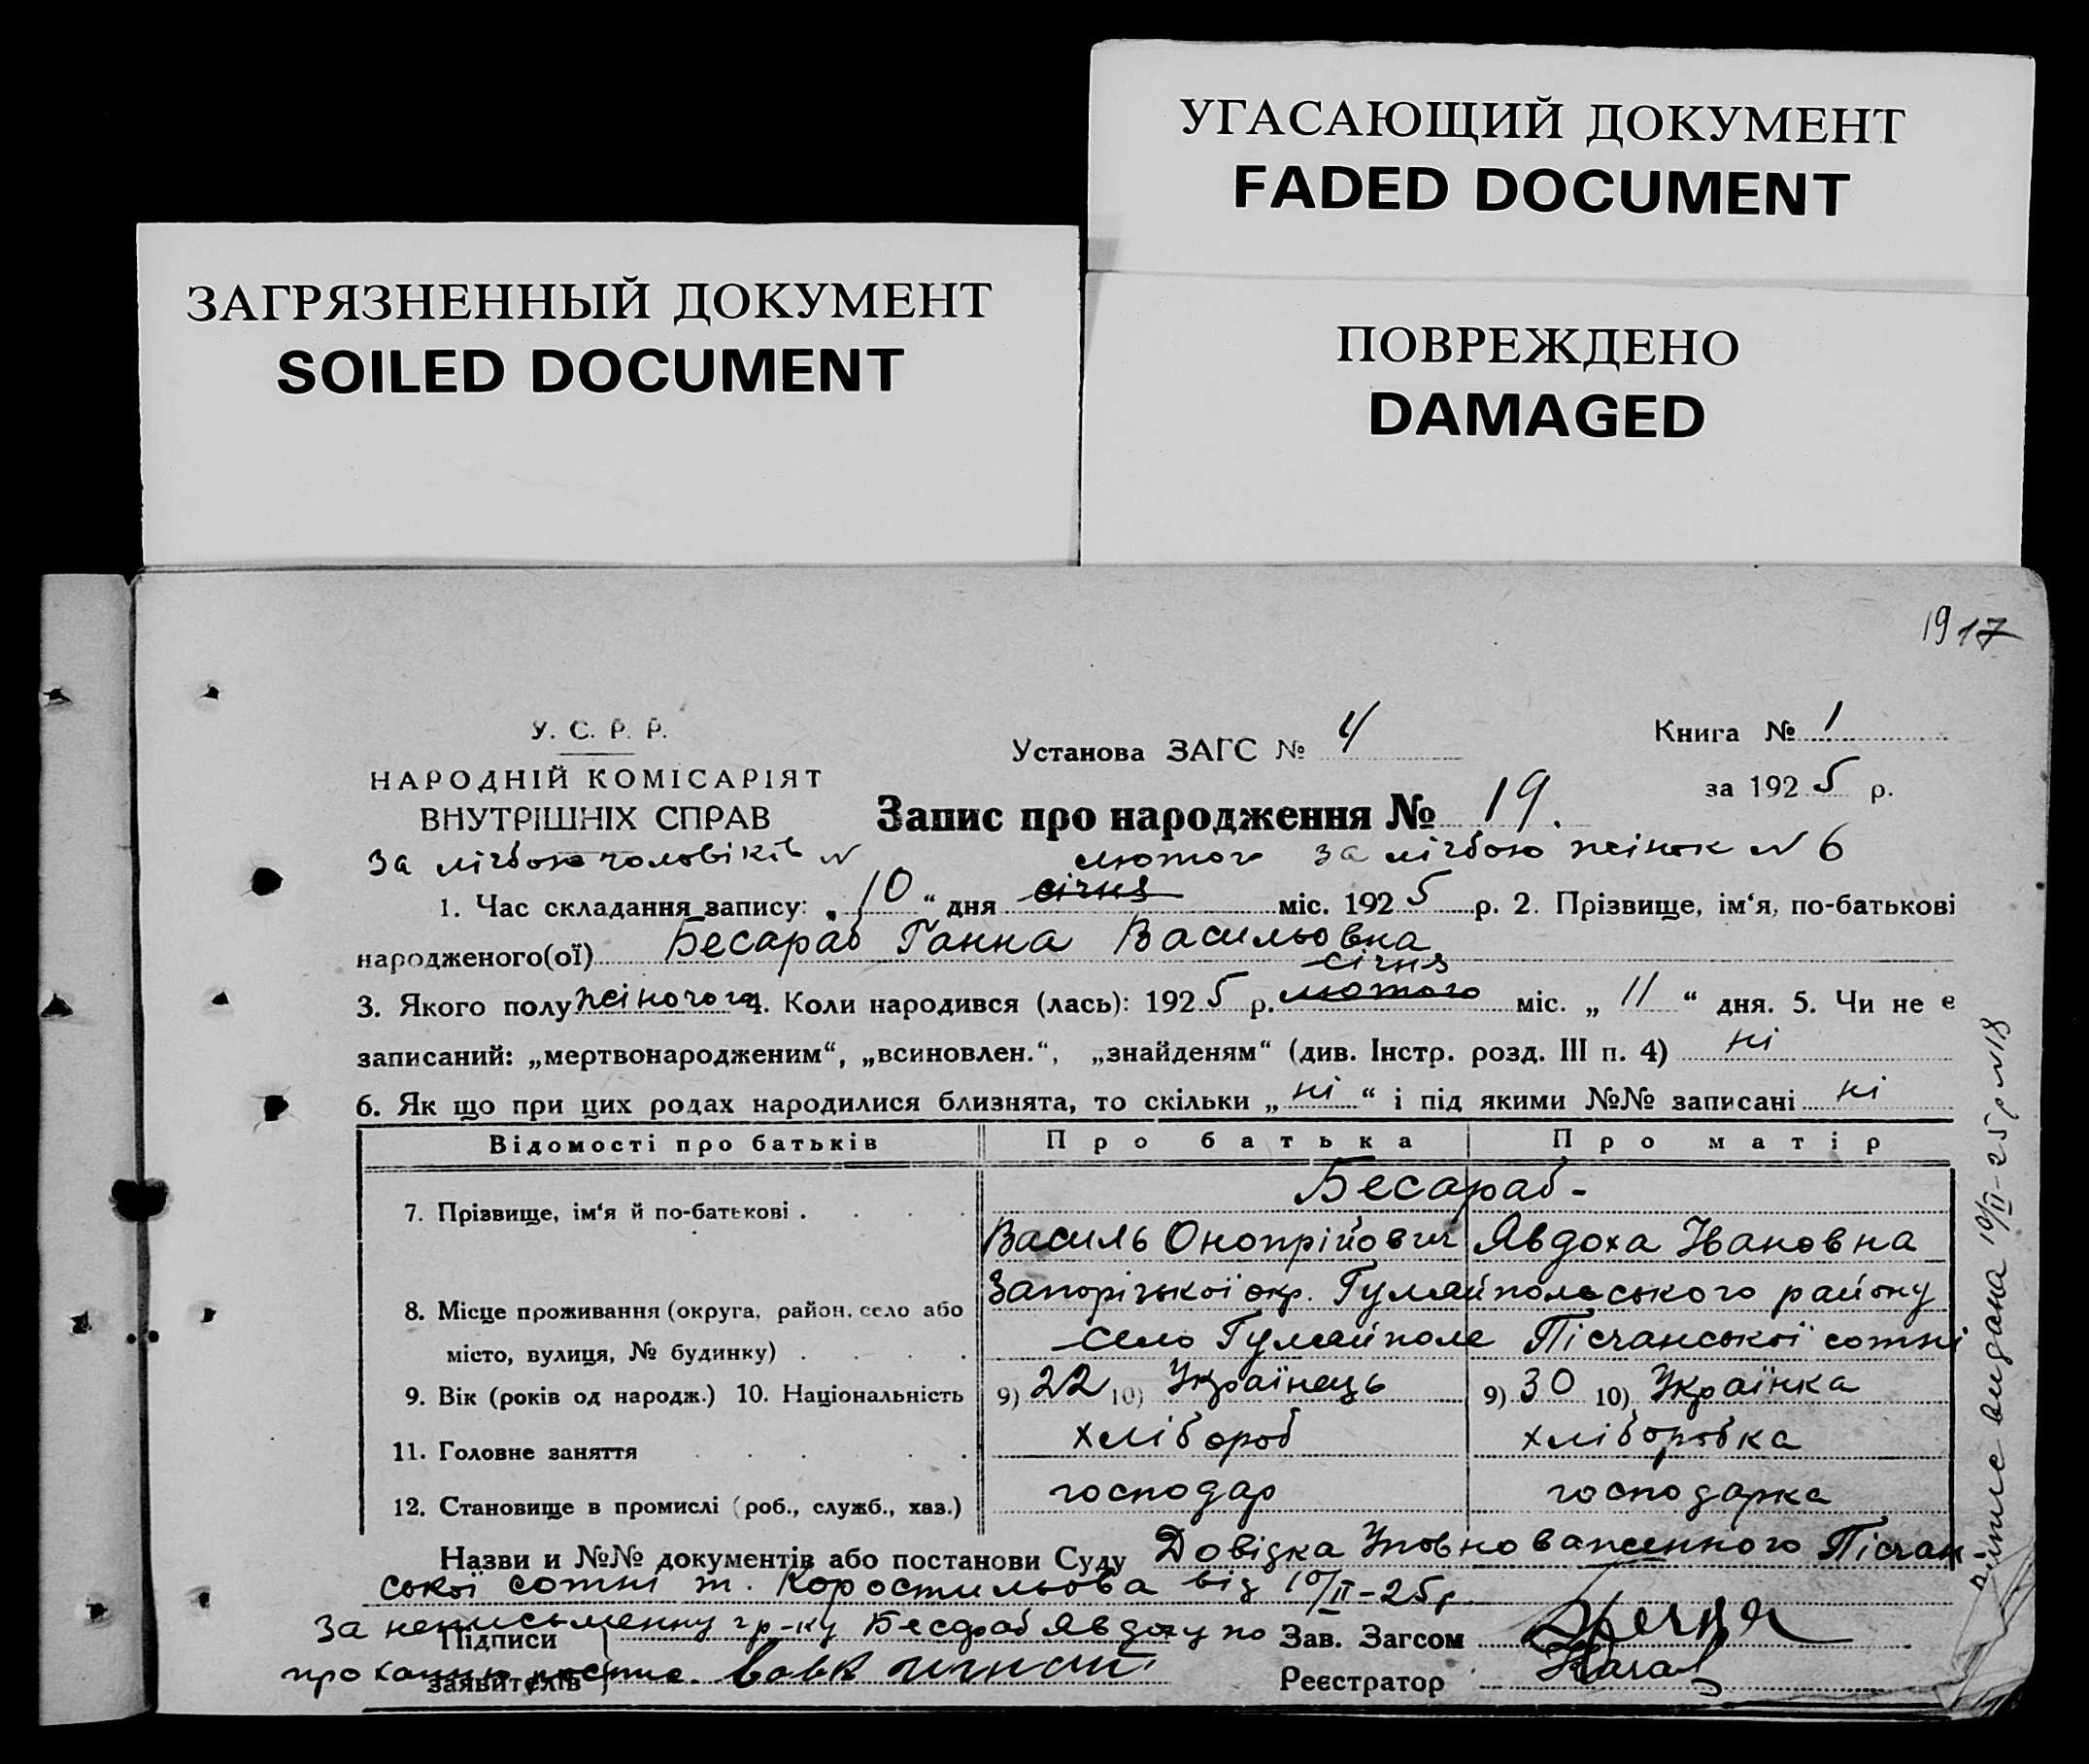 УГАСАЮЩИЙ ДОКУМЕНТ
FADED DOCUMENT
ЗАГРЯЗНЕННЫЙ ДОКУМЕНТ
SOILED DOCUMENT
ПОВРЕЖДЕНО
DAMAGED
19 17
У. С. Р. Р.
НАРОДНІЙ КОМІСАРІЯТ
ВНУТРІШНІХ СПРАВ
Установа ЗАГС № 4
Книга № 1
за 1925 р.
Запис про народження № 19.
За лічбою чоловіків №
лютого За лічбою жінок № 6
1. Час складання запису: „10“ дня січня міс. 1925 р. 2. Прізвище, ім‘я, по-батькові
народженого(ої) Бесараб Ганна Васильовна
січня
3. Якого полу жіночого 4. Коли народився (лась): 1925 р. лютого міс. „11“ дня. 5. Чи не є
записаний: „мертвонародженим“, „всиновлен.“, „знайденям“ (див. Інстр. розд. III п. 4) ні
6. Як що при цих родах народилися близнята, то скільки „ні“ і під якими №№ записані ні
Відомості про батьків Про батька Про матір
Бесараб-
7. Прізвище, ім‘я й по-батькові . Василь Онопрійович Явдоха Івановна
8. Місце проживання (округа, район, село або Запорізької окр. Гуляйпольського району
місто, вулиця, № будинку) село Гуляйполе Пісчанської сотні
9. Вік (років од народж.) 10. Національність 9) 22 10) Українець 9) 30 10) Українка
11. Головне заняття хлібороб хліборобка
12. Становище в промислі (роб., служб., хаз.) господар господарка
Назви и №№ документів або постанови Суду Довідка Уповноваженного Пісчан-
ської сотні т. Коростильова від 10/II-25р
За неписьменну гр-ку Бесараб Явдоху по
Підписи
Зав. Загсом
проханню
заявителів
Реєстратор
видана 10/II-25р №18